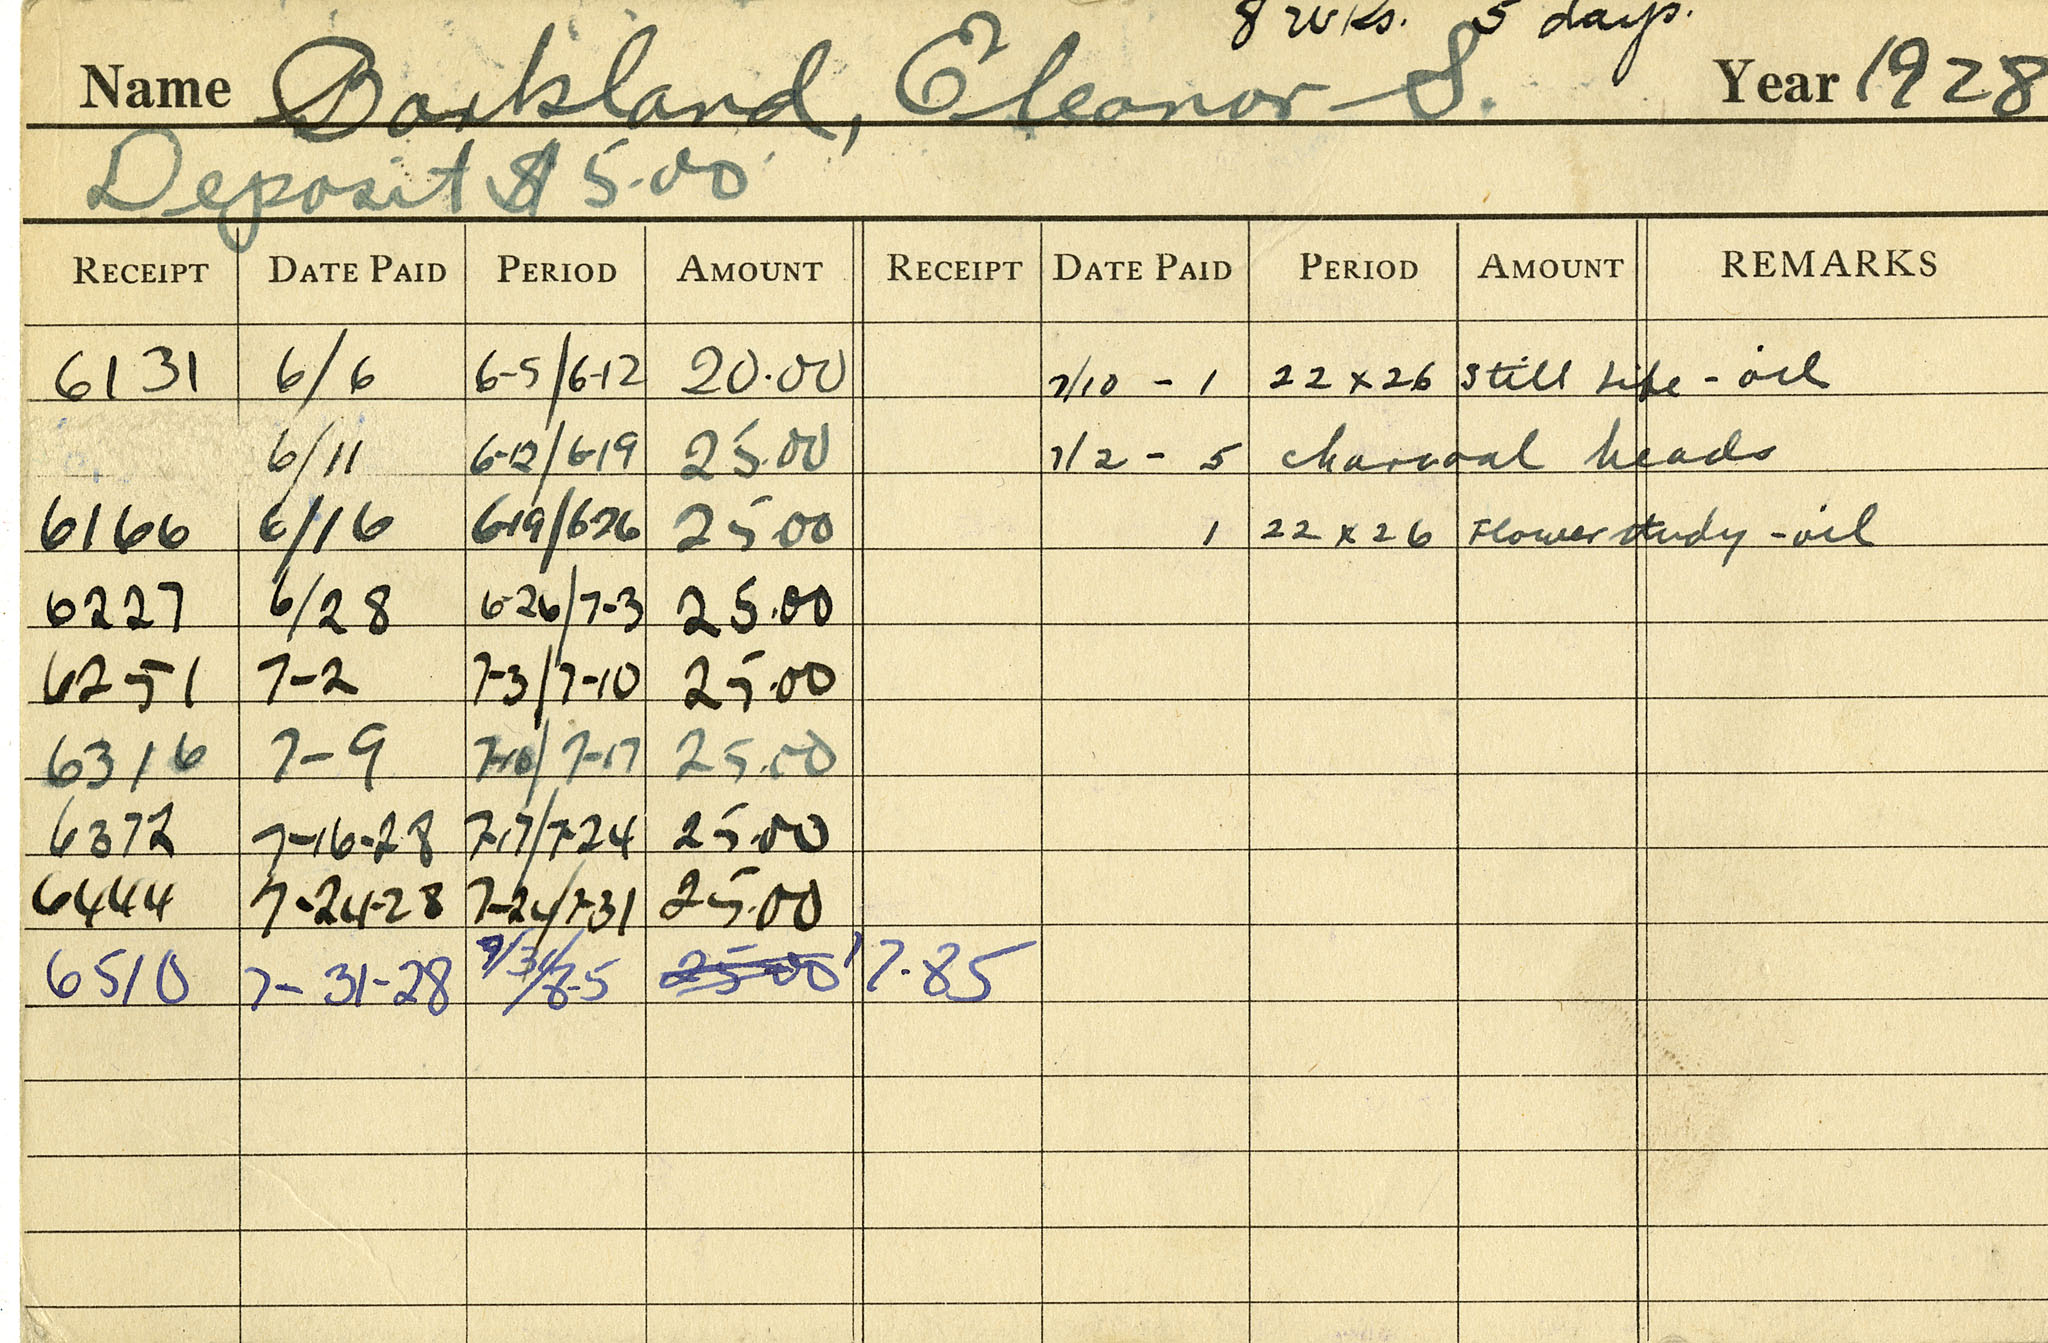 8 wks. 5 days.
Name Barkland, Eleanor S. Year 1928
Deposit $5.00
RECEIPT DATE PAID PERIOD AMOUNT RECEIPT DATE PAID PERIOD AMOUNT REMARKS
6131 6/6 6-5/6-12 20.00 7/10 - 1 22 x 26 Still Life - oil
6/11 6-12/6-19 25.00 7/2 - 5 charcoal heads
6166 6/16 6-19/6-26 25.00 1 22 x 26 Flower study - oil
6227 6/28 6-26/7-3 25.00
6251 7-2 7-3/7-10 25.00
6316 7-9 7-10/7-17 25.00
6372 7-16-28 7-17/7-24 25.00
6444 7-24-28 7-24/7-31 25.00
6510 7-31-28 7/31/8-5 25.00 17.85